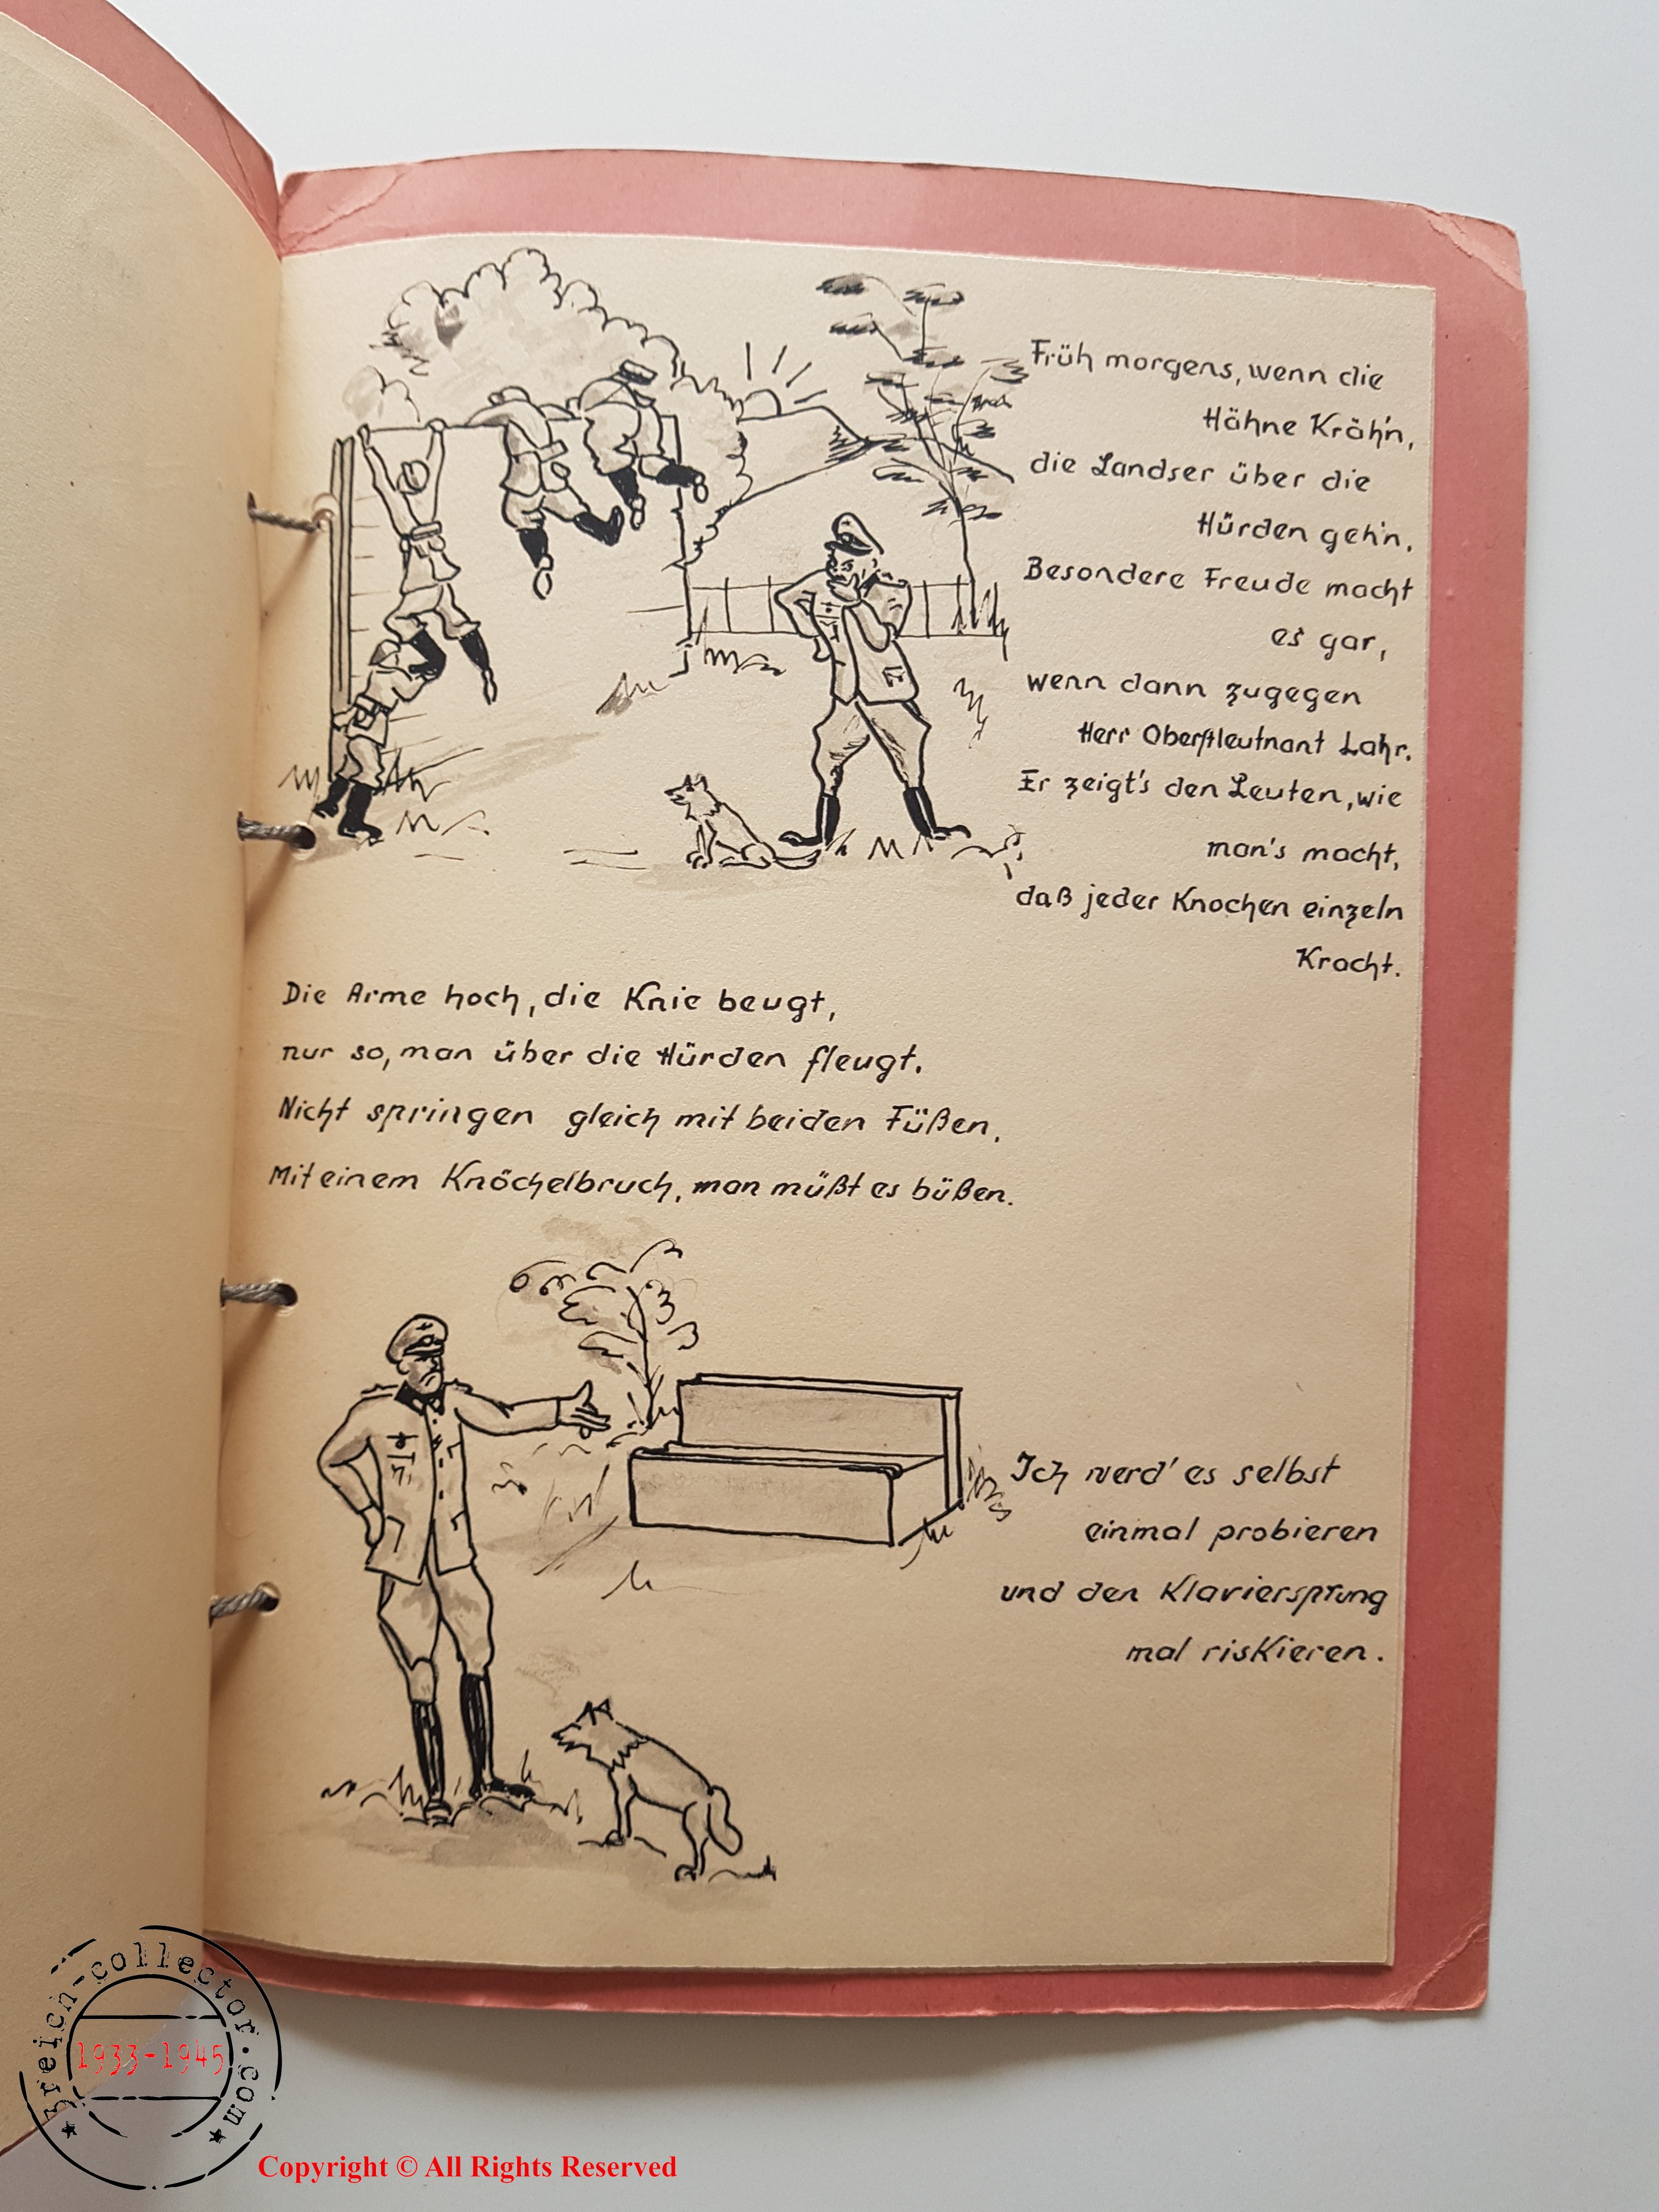 Früh morgens, wenn die
Hähne Kräh'n,
die Landser über die
Hürden geh'n.
Besondere Freude macht
es gar,
wenn dann zugegen
Herr Oberstleutnant Lahr.
Er zeigt's den Leuten, wie
man's macht,
daß jeder Knochen einzeln
Kracht.
Die Arme hoch, die Knie beugt,
nur so, man über die Hürden fleugt.
Nicht springen gleich mit beiden Füßen,
Mit einem Knöchelbruch, man müßt es büßen.
Ich werd' es selbst
einmal probieren
und den Klaviersprung
mal risKieren.
3reich-collector.com
1933-1945
Copyright © All Rights Reserved